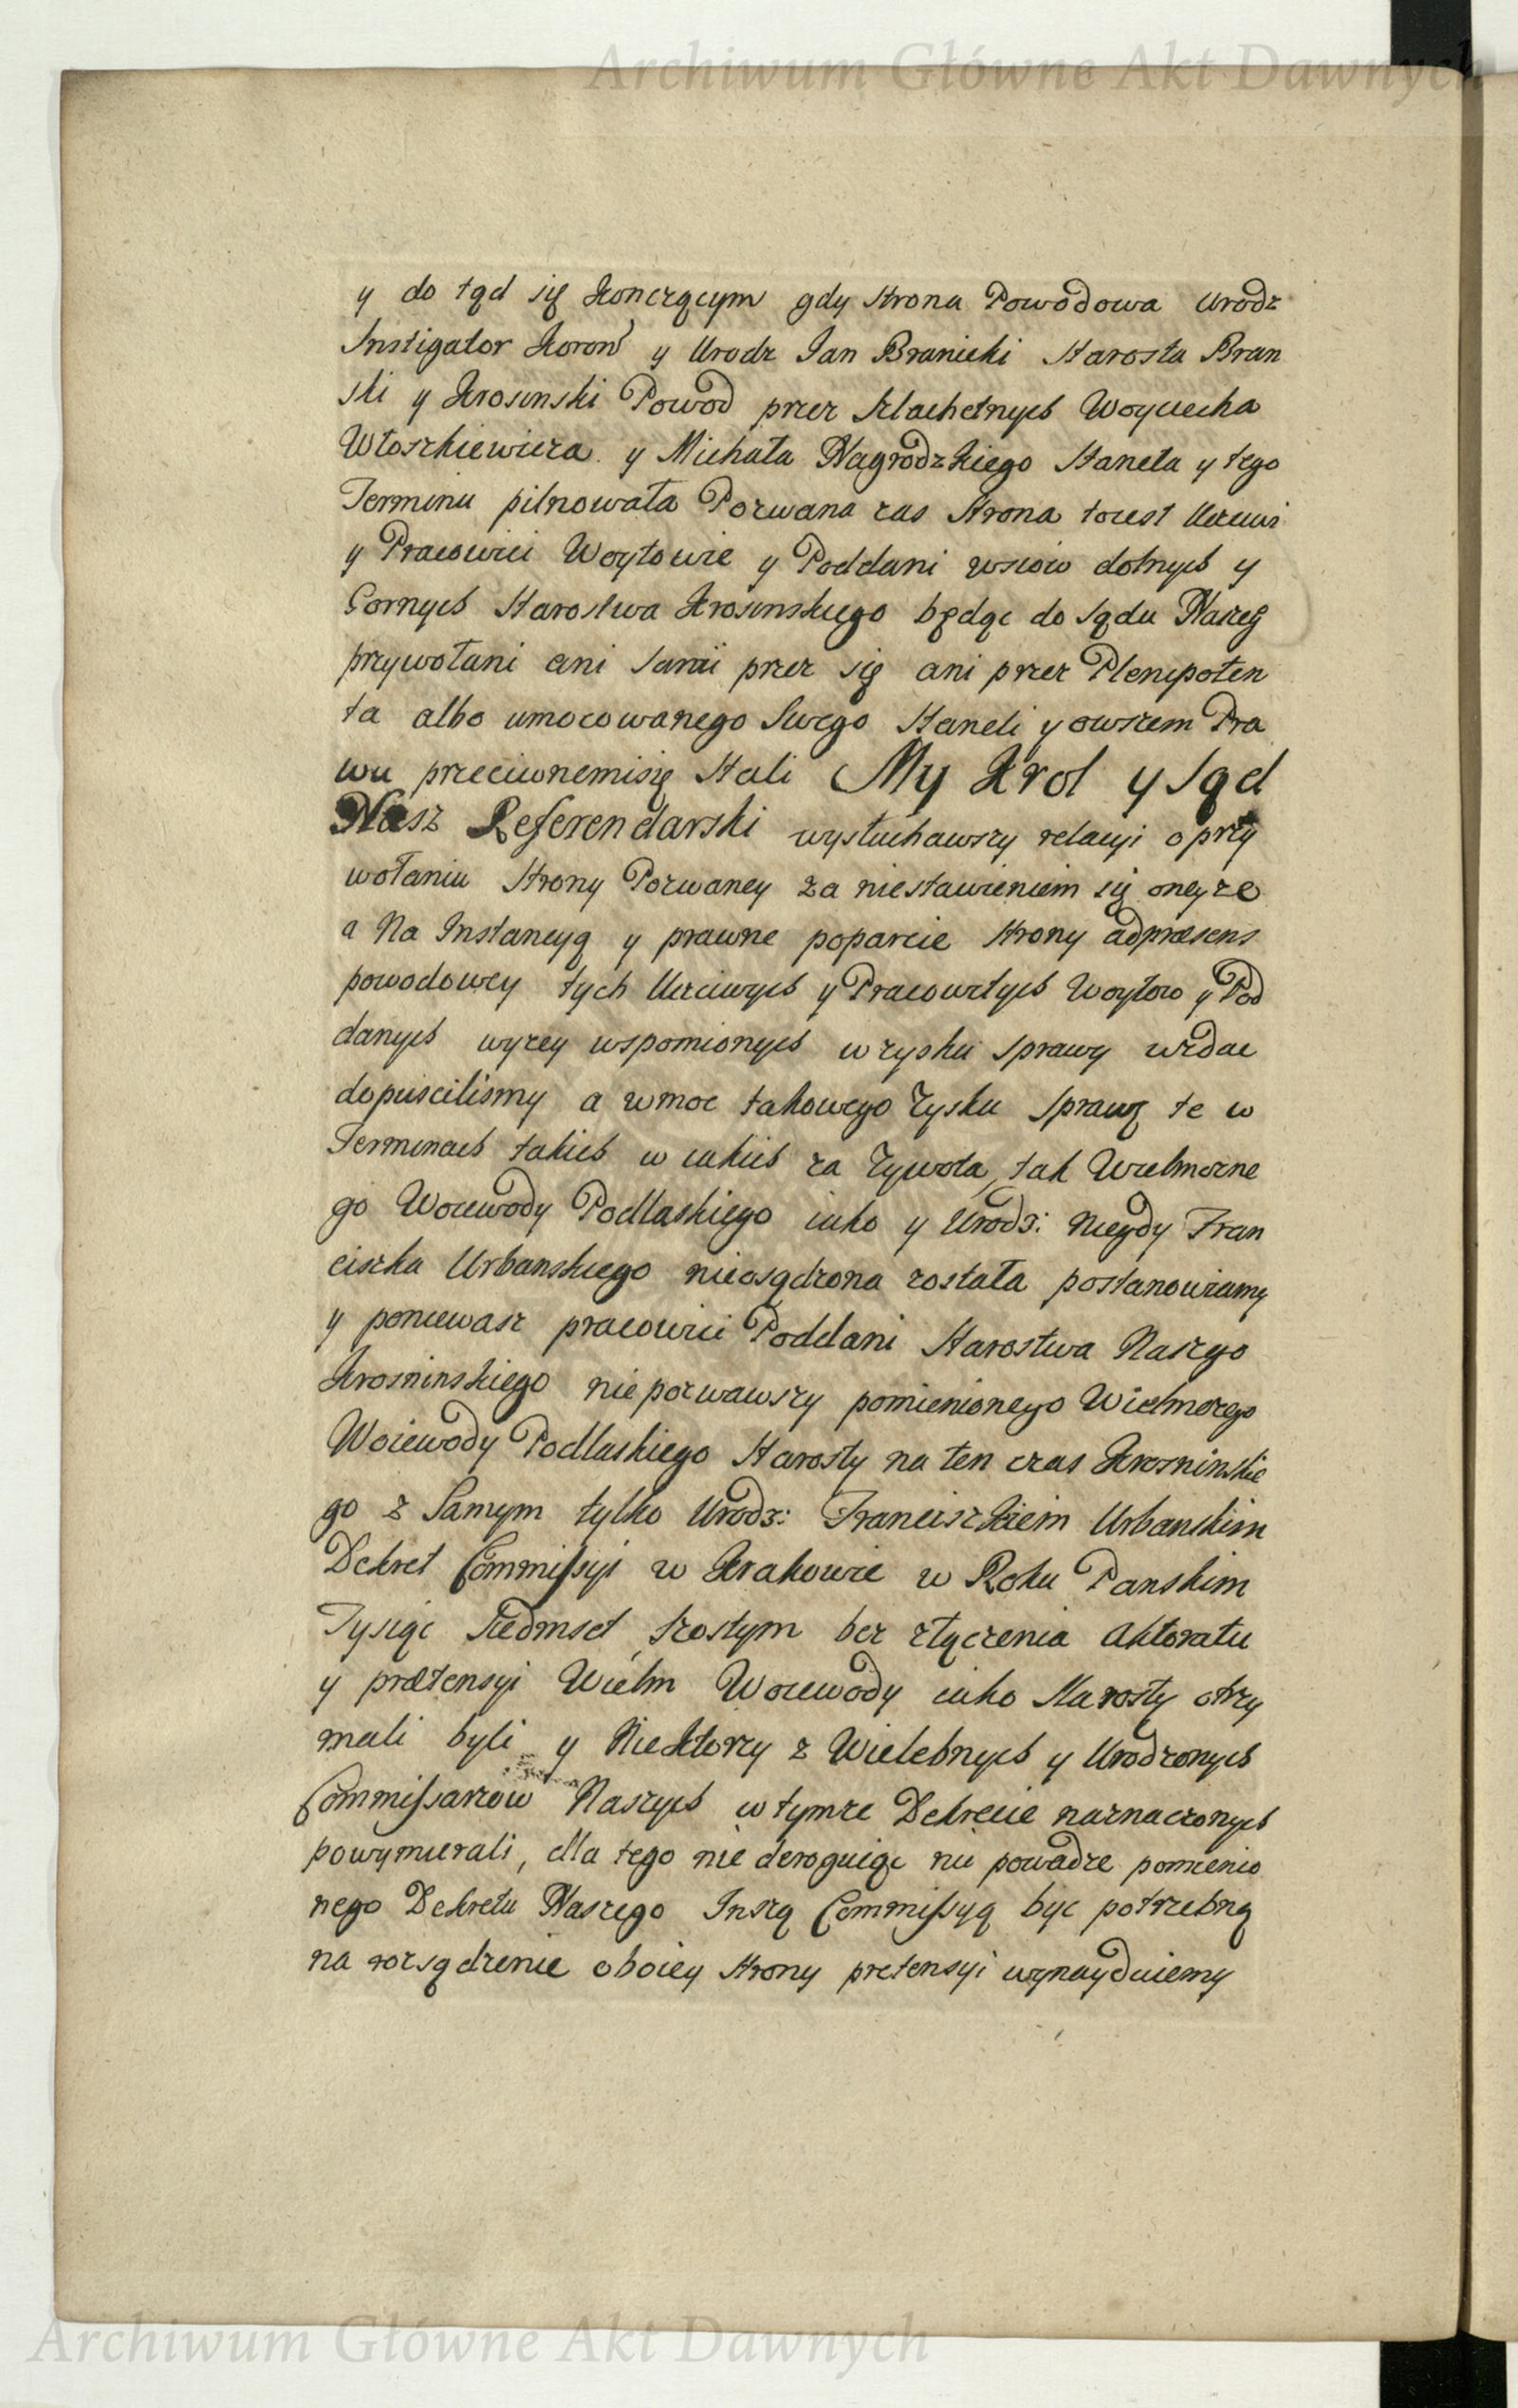 Archiwum Główne Akt Dawnych
y do tąd się konczącym gdy strona Powodowa Urodz
Instigator Koron y Urodz Jan Branicki Starosta Bran
ski y Krosinski Powod przez Szlachetnych Woyciecha
Włoszkiewicza y Michała Nagrodzkiego Staneła y tego
Terminu pilnowała Pozwana zas Strona toiest Uczciwi
y Pracowici Woytowie y Poddani wsiow dolnych y
Gornych Starostwa Krosinskiego będąc do sądu Naszeg
przywołani ani sami przez się ani przez Plenipoten
ta albo umocowanego swego Staneli y owszem Pra
wu przeciwnemisię Stali My Krol y Sąd
Nasz Referendarski wysłuchawszy relacyi o przy
wołaniu Strony Pozwaney za niestawieniem się oneyze
a Na Instancyą y prawne poparcie strony adpræsens
powodowey tych Uczciwych y Pracowitych Woytow y Pod
danych wyzey wspomionych w zysku sprawy wzdac
dopuscilismy a wmoc takowego Zysku sprawę te w
Terminach takich w iakich za Zywota tak Wielmozne
go Woiewody Podlaskiego iako y Urodz: niegdy Fran
ciszka Urbanskiego nieosądzona została postanowiamy
y poniewasz pracowici Poddani Starostwa Naszego
Krosninskiego niepozwawszy pomienionego Wielmozego
Woiewody Podlaskiego Starosty na ten czas Krosninskie
go z Samym tylko Urodz: Franciszkiem Urbanskim
Dekret Commissyi w Krakowie w Roku Panskim
Tysiąc siedmset szostym bez złączenia Aktoratu
y prætensyi Wielm Woiewody iako Starosty otrzy
mali byli y Niektorzy z Wielebnych y Urodzonych
Commissarzow Naszych w tymze Dekrecie naznaczonych
powymierali, dla tego nie deroguiąc nic powadze pomienio
nego Dekretu Naszego Inszą Commissyą byc potrzebną
na rozsądzenie oboiey strony pretensyi wynayduiemy
Archiwum Główne Akt Dawnych